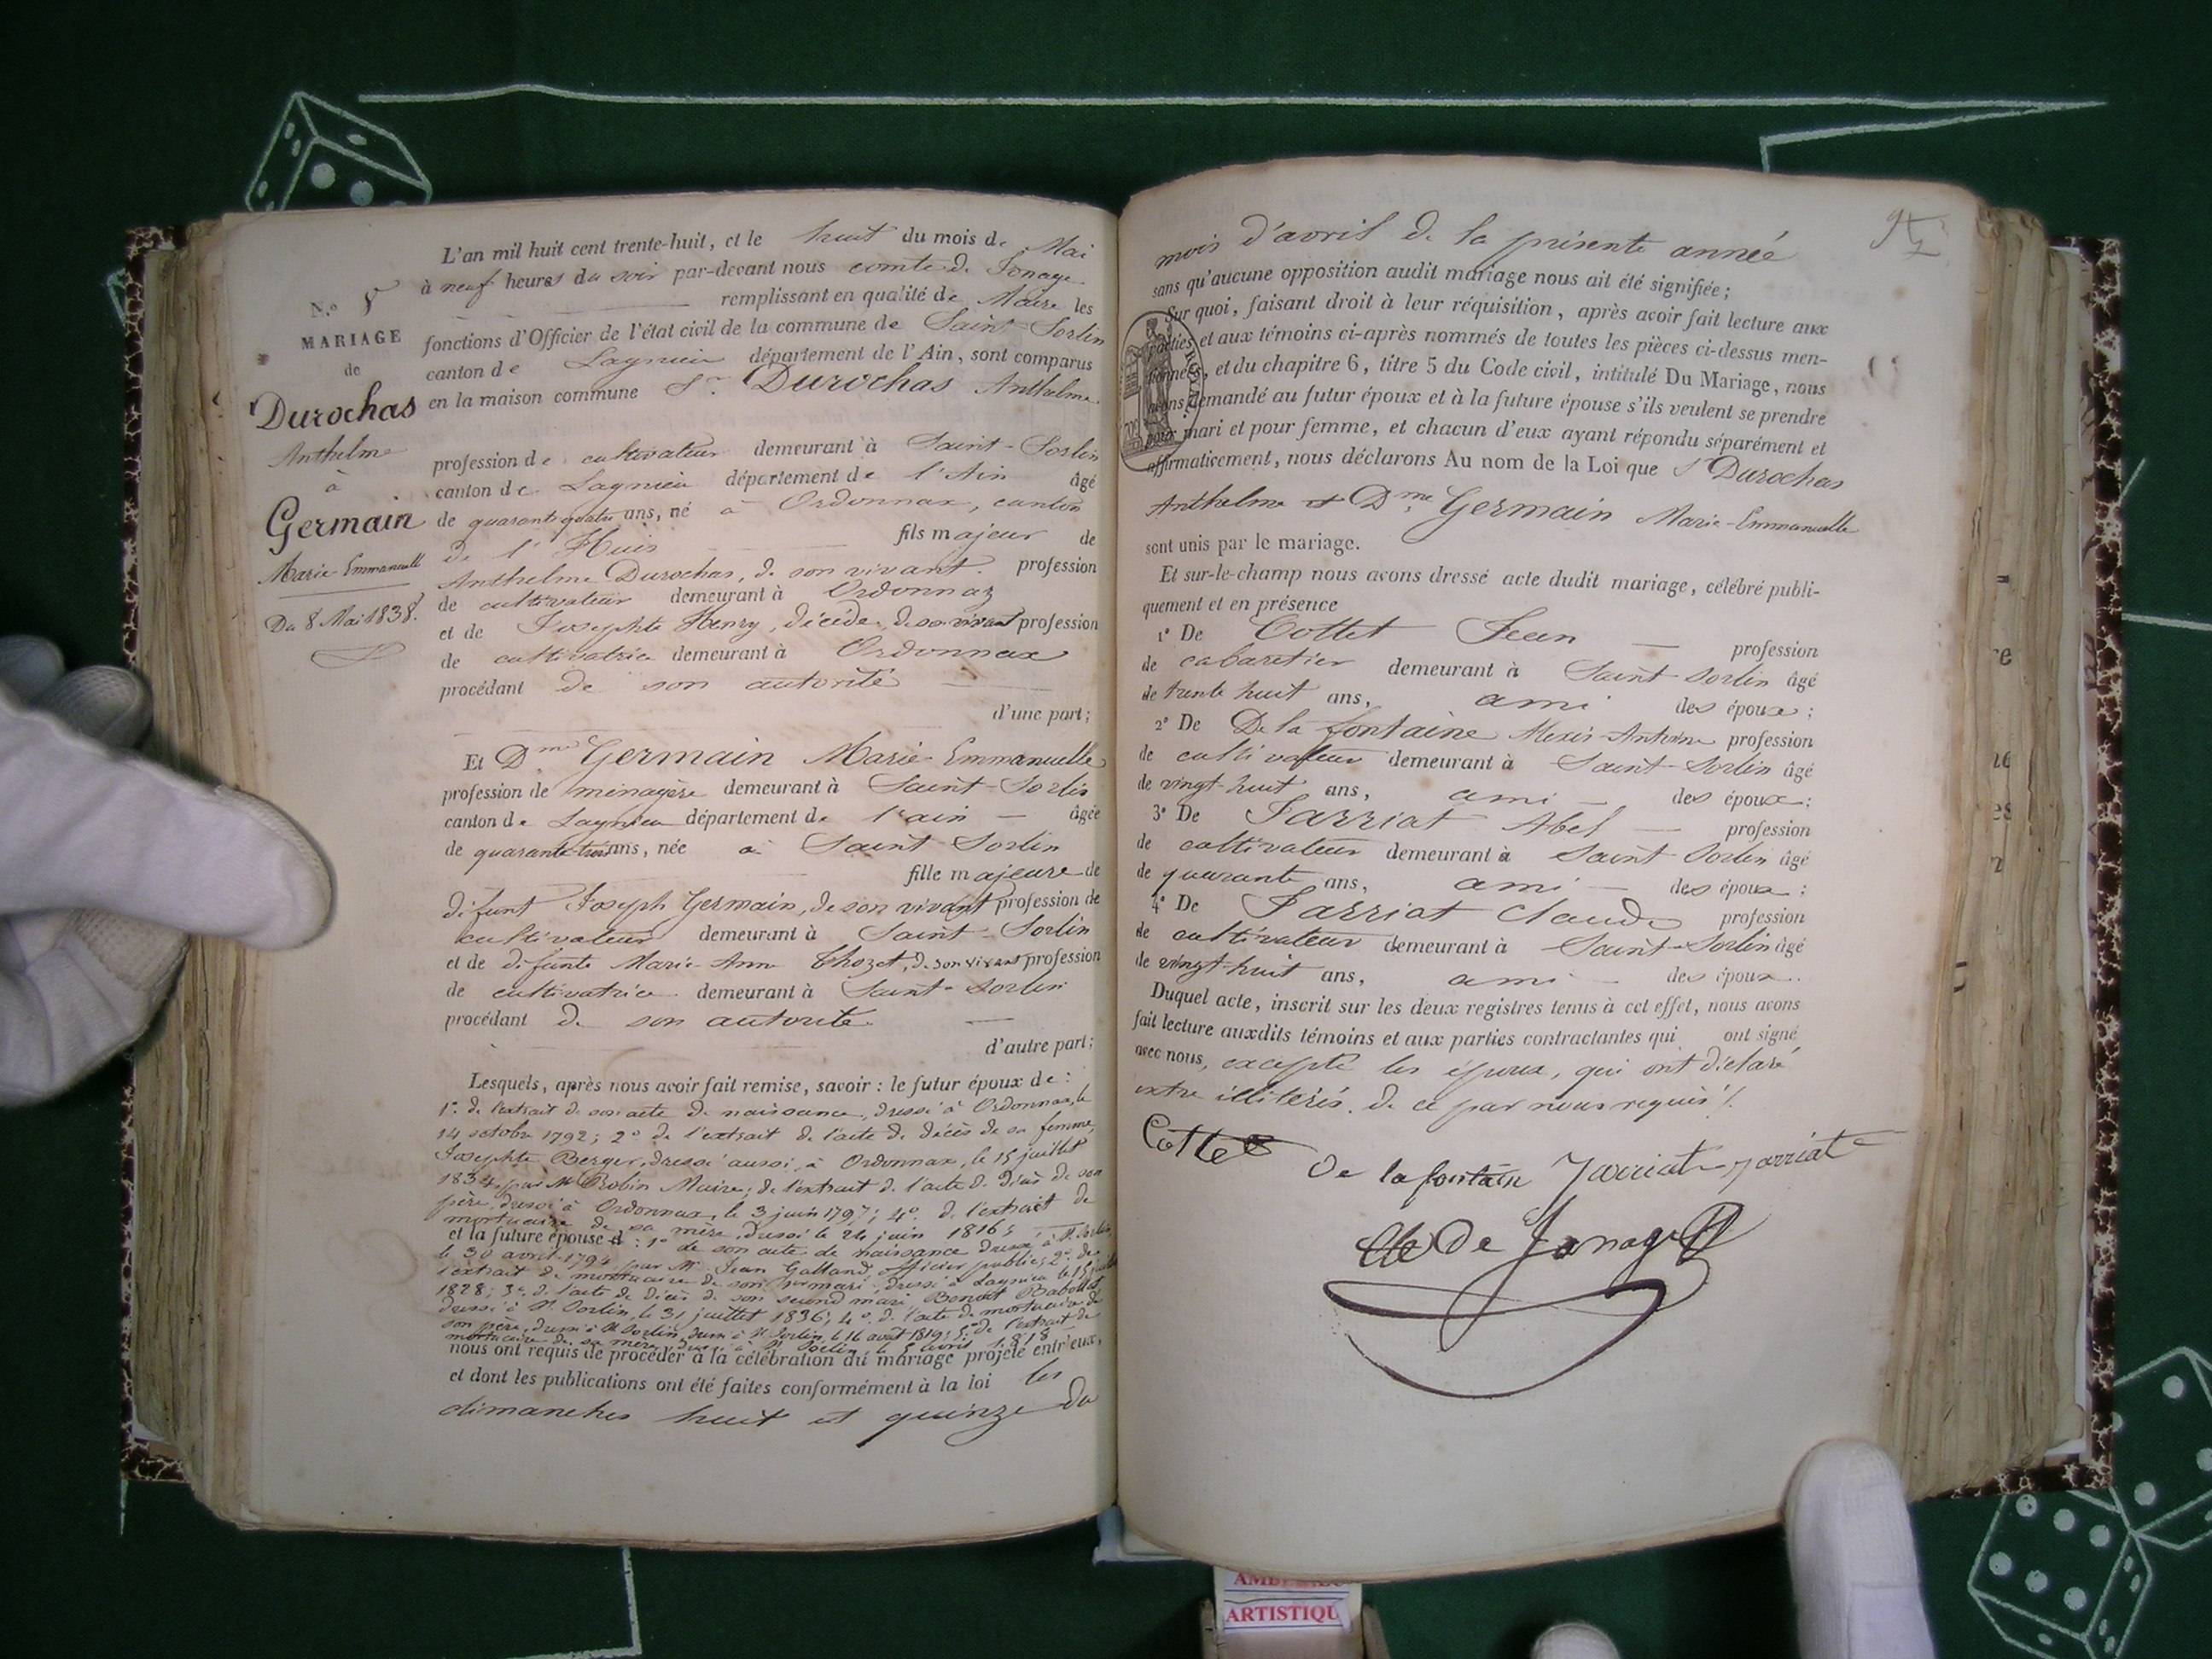 N.o 8
MARIAGE
de
Durochas
Anthelme
à
Germain
Marie-Emmanuelle
Du 8 Mai 1838.
L'an mil huit cent trente-huit, et le huit du mois de Mai
à neuf heures du soir par-devant nous comte de Jonage
remplissant en qualité de Maire les
fonctions d'Officier de l'état civil de la commune de Saint-Sorlin
canton de Lagnieu département de l'Ain, sont comparus
en la maison commune Sr. Durochas Anthelme
profession de cultivateur demeurant à Saint-Sorlin
canton de Lagnieu département de l'Ain âgé
de quarante quatre ans, né à Ordonnax, canton
de l'Huis fils majeur de
Anthelme Durochas, de son vivant profession
de cultivateur demeurant à Ordonnaz
et de Josephte Henry, décédée, de son vivant profession
de cultivatrice demeurant à Ordonnax
procédant de son autorité
d'une part;
Et Dme Germain Marie-Emmanuelle
profession de ménagère demeurant à Saint-Sorlin
canton de Lagnieu département de l'ain âgée
de quarante-trois ans, née à Saint Sorlin
fille majeure de
défunt Joseph Germain, de son vivant profession de
cultivateur demeurant à Saint-Sorlin
et de défunte Marie-Anne Thozet, de son vivant profession
de cultivatrice demeurant à Saint-Sorlin
procédant de son autorité
d'autre part;
Lesquels, après nous avoir fait remise, savoir: le futur époux de:
1o. de l'extrait de son acte de naissance, dressé à Ordonnax, le
14 octobre 1792; 2o de l'extrait de l'acte de décès de sa femme,
Josephte Berger, dressé aussi à Ordonnax, le 15 juillet
1834, par Mr Robin Maire; de l'extrait de l'acte de décès de son
père, dressé à Ordonnax, le 3 juin 1797; 4o. de l'extrait de
mortuaire de sa mère, dressé le 24 juin 1816;
et la future épouse d: 1o de son acte de naissance dressé à St. Sorlin,
le 30 avril 1794 par Mr Jean Galland officier public; 2o. de
l'extrait de mortuaire de son 1er mari, dressé à Lagnieu le 15
1828; 3o. de l'acte de décès de son second mari Benoit
dressé à St. Sorlin, le 31 juillet 1836; 4o. de l'acte de mortuaire de
son père, dressé à St Sorlin, dressé à St Sorlin, le 16 août 1819; 5o de l'extrait de
mortuaire de sa mère, dressé à St Sorlin le 5 avril 1818
nous ont requis de procéder à la célébration du mariage projeté entr'eux,
et dont les publications ont été faites conformément à la loi les
dimanches huit et quinze du
mois d'avril de la présente année
sans qu'aucune opposition audit mariage nous ait été signifiée;
Sur quoi, faisant droit à leur réquisition, après avoir fait lecture aux
parties et aux témoins ci-après nommés de toutes les pièces ci-dessus men-
tionnées, et du chapitre 6, titre 5 du Code civil, intitulé Du Mariage, nous
avons demandé au futur époux et à la future épouse s'ils veulent se prendre
pour mari et pour femme, et chacun d'eux ayant répondu séparément et
affirmativement, nous déclarons Au nom de la Loi que Sr Durochas
Anthelme et Dme Germain Marie-Emmanuelle
sont unis par le mariage.
Et sur-le-champ nous avons dressé acte dudit mariage, célébré publi-
quement et en présence
1o De Cottet Jean profession
de cabaretier demeurant à Saint-Sorlin âgé
de trente huit ans, ami des époux;
2o De De la fontaine Alexis-Antoine profession
de cultivateur demeurant à Saint-Sorlin âgé
de vingt-huit ans, ami des époux;
3o De Jarriat Abel profession
de cultivateur demeurant à Saint-Sorlin âgé
de quarante ans, ami des époux;
4o De Jarriat Claude profession
de cultivateur demeurant à Saint-Sorlin âgé
de vingt-huit ans, ami des époux.
Duquel acte, inscrit sur les deux registres tenus à cet effet, nous avons
fait lecture auxdits témoins et aux parties contractantes qui ont signé
avec nous, excepté les époux, qui ont déclaré
être illitérés. de ce par nous requis /.
Cottet De la fontaine Jarriat Jarriat
Cte De Jonage
ARTISTIQU